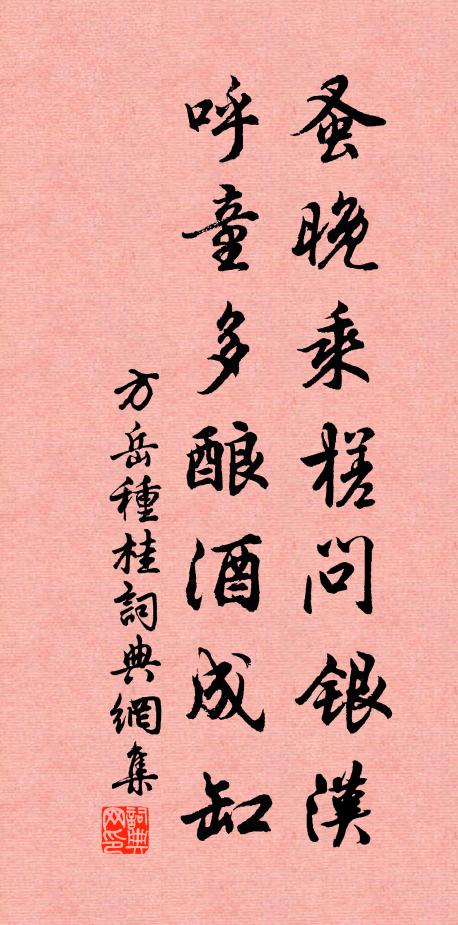 蚤晚乘槎问银漢
呼童多酿酒成缸
方岳種桂詞典網集
詞典网印